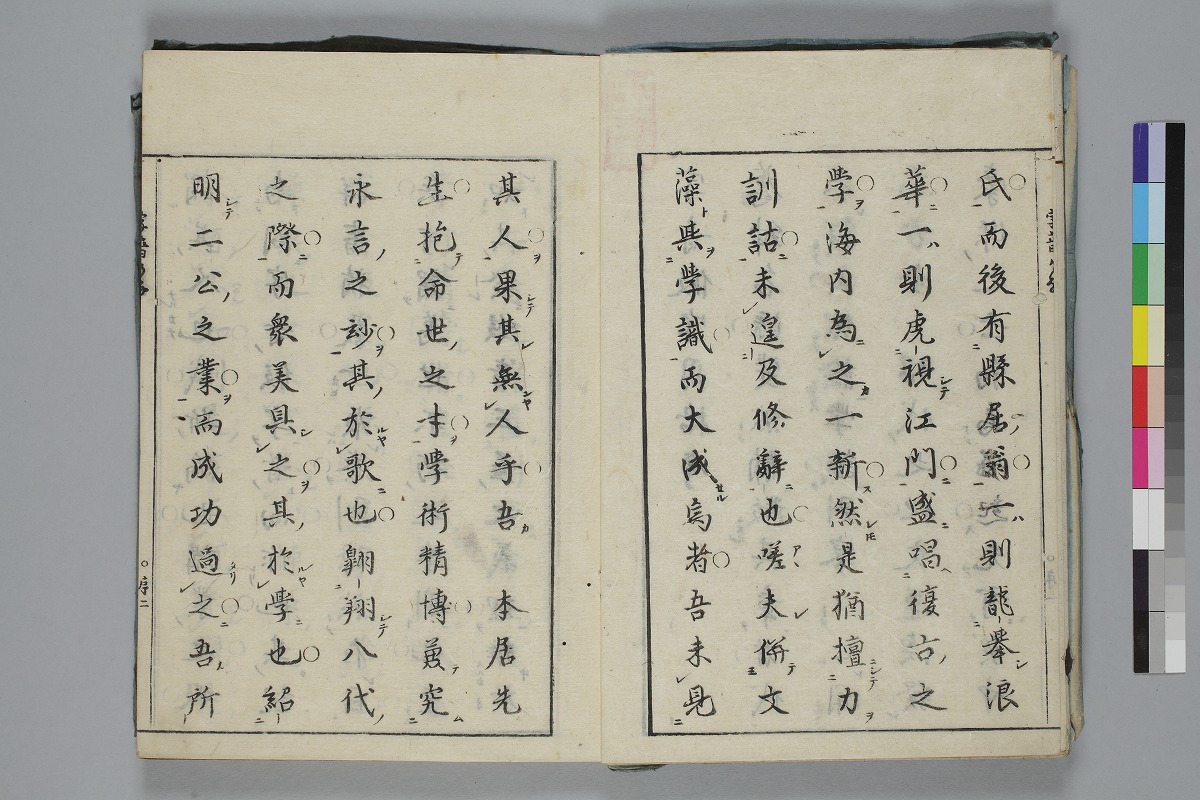 氏而後有縣居翁一則龍舉浪
華一則虎視江門盛唱復古之
學海内為之一斬然是猶擅力
訓詁未遑及修辭也嗟夫併文
藻與學識而大成焉者吾未見
其人果其無人乎吾本居先
生抱命世之才學術精博兼究
永言之玅其於歌也翺翔八代
之際而衆美具之其於學也紹
明二公之業而成功過之吾所
序二